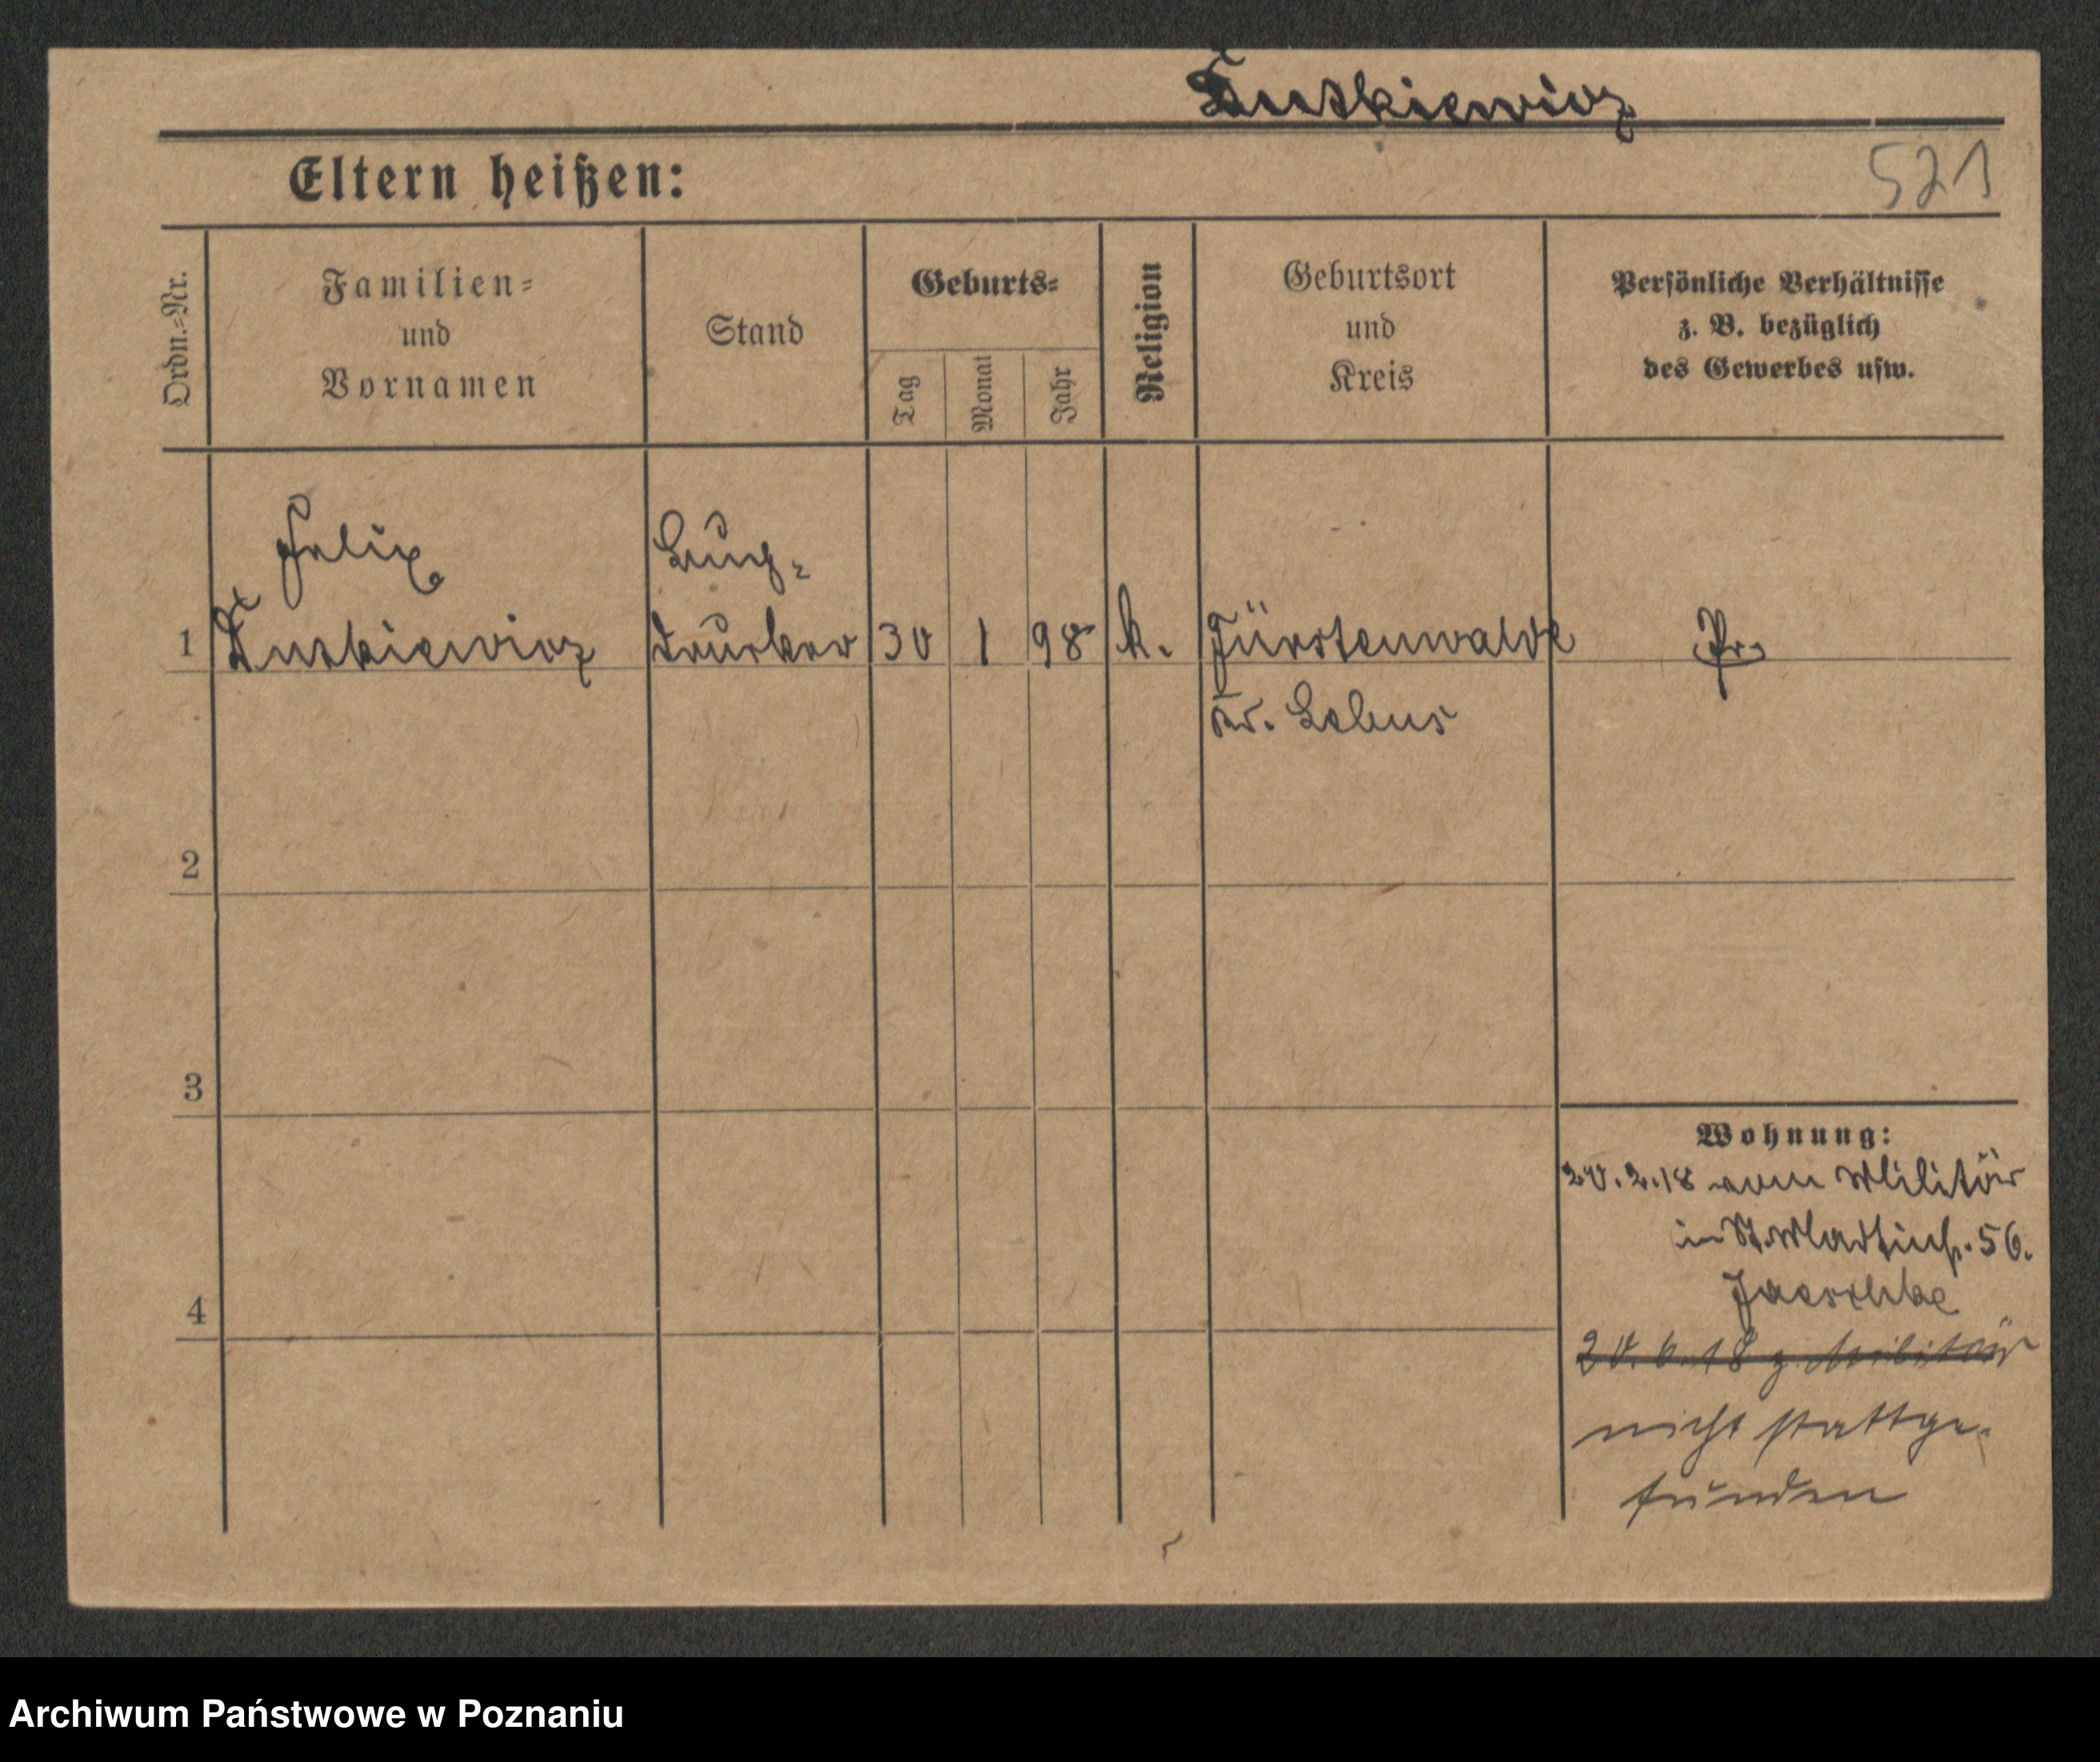 Lutkiewicz
521
Eltern heißen:
Ordn.=Nr.
Familien=
und
Vornamen
Stand
Geburts=
Tag
Monat
Jahr
Religion
Geburtsort
und
Kreis
Persönliche Verhältnisse
z. B. bezüglich
des Gewerbes usw.
Felix
1 Lutkiewicz
drucker 30 1 98 k. Fürstenwalde Pr.
Kr. Lebus
2
3
4
Wohnung:
20.2.18 vom Militär
in St. Martinstr. 56.
Jaeschke
20.6.18 z. Militär
nicht stattge-
funden
Archiwum Państwowe w Poznaniu